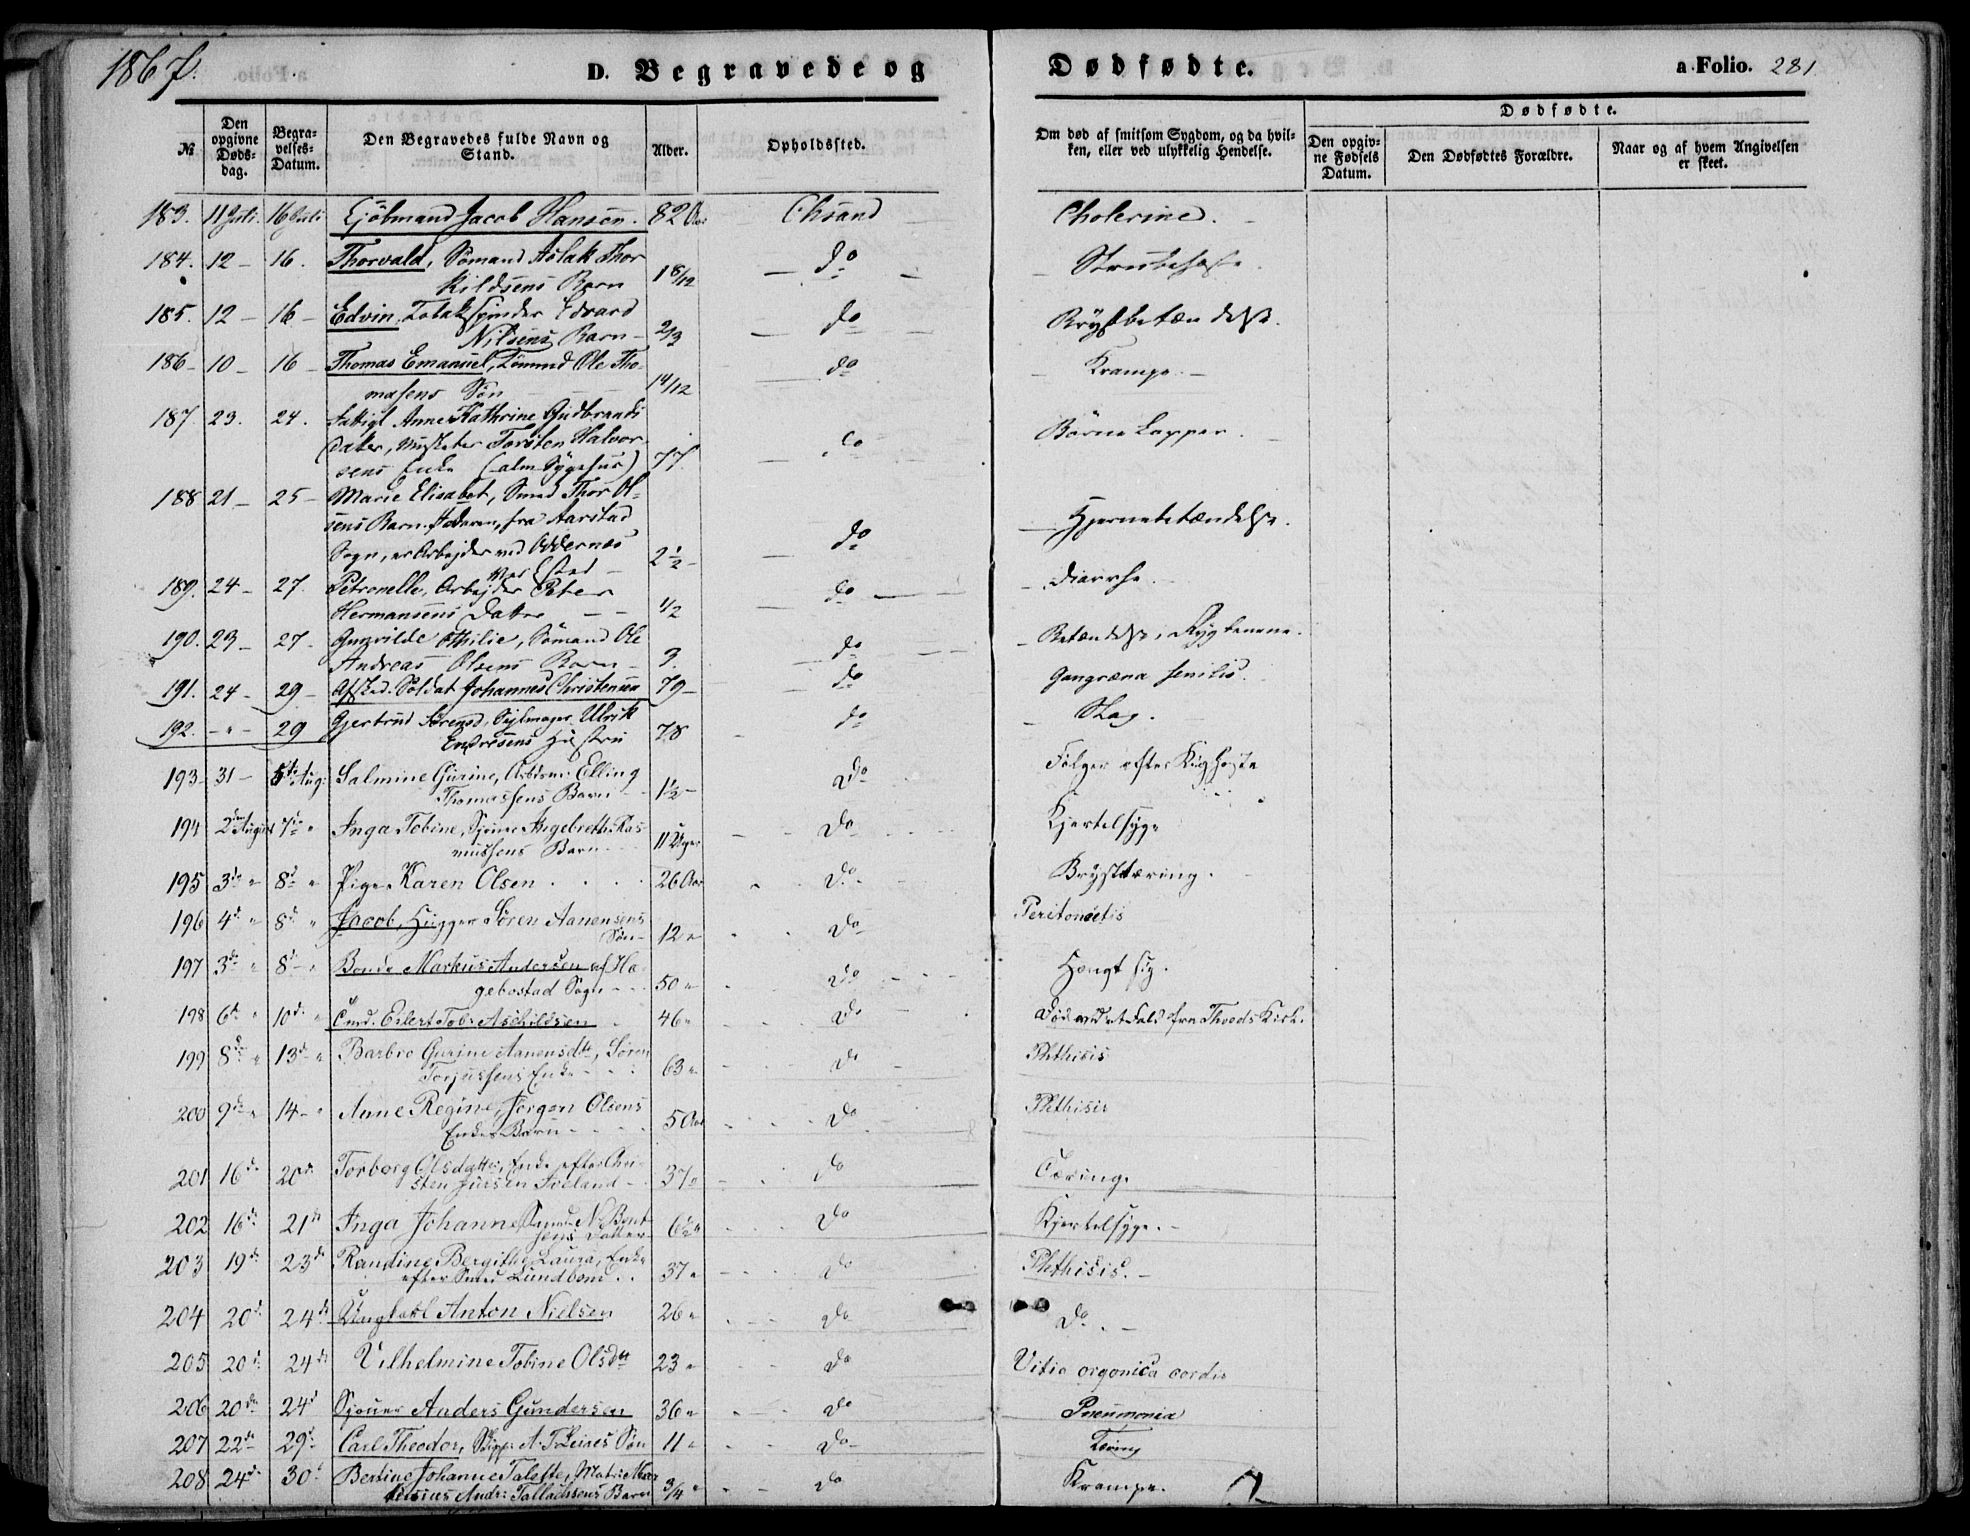 1867.
D. Begravede og Dødfødte. a. Folio. 281
Dødfødte.
№ Den opgivne Døds-dag. Begra-velses-Datum. Den Begravedes fulde Navn og Stand. Alder. Opholdssted. Om død af smitsom Sygdom, og da hvil-ken, eller ved ulykkelig Hendelse. Den opgiv-ne Fødsels Datum. Den Dødfødtes Forældre. Naar og af hvem Angivelsen er skeet.
183. 11 Juli. 16 Juli Kjöbmand Jacob Hansen. 82 Aar Chsand Cholerine.
184. 12 - 16. Thorvald, Sömand Aslak Thor
kildsens Barn 1 8/12 do Strubehoste.
185. 12 - 16 - Edvin, Tobakspinder Edvard
Nilsens Barn - 2/3 do Brystbetændelse.
186 - 10 - 16 - Thomas Emanuel, Tömmd Ole Tho-
masens Sön 1 4/12 do Krampe. -
187 23. 24. Fattigl Anne Kathrine Gudbrands
Dater, Musketer Torsten Halvor-
sens Enke (alm. Sygehus) 77. do
188 21 - 25 - Marie Elisabet, Smed Thor Ol-
sens Barn. Faderen, fra Aarstad
Sogn, er Arbejder ved Oddernes
Værksted - 2 1/2 - do Hjernebetændelse.
189. 24 - 27. Petronelle, Arbejder Peter
Hermansens Datter - - 1/2 do Diarrhe.
190. 23 - 27. Gunvilde Othilie, Sömand Ole
Andreas Olsens Barn - 9. do Betændelse i Rygbenene.
191. 24 - 29 - Afsked. Soldat Johannes Christensen 79 - do Gangræna senilis.
192. - " - 29 Gjertrud Sörensd, Sejlmager Ulrik
Endresens Hustru 78 do Slag.
193 - 31 - 5te Aug: Salmine Gurine, Arbdsm. Elling
Thomassens Barn - - 1 1/2 - Do Følger efter Kighoste
194 2den August 7de " Inga Tobine, Sjouer Ingebreth Ras-
mussens Barn - - 11 Uger Do Kjertelsyge
195 3de " 8de " Pige Karen Olsen . . . . 26 Aar Do Brysttæring.
196 4de " 8de " Jacob, Hugger Sören Aanensens
Søn - 12 " Do Peritonitis
197 3de " 8de " Bonde Markus Andersen af Ha-
gebostad Sogn - - 50 " Do Hængt sig.
198 6te " 10de " Eilert Tob. Aschildsen 46 " Do Død ved et Fald fra Kirk.
199 8de " 13de " Barbro Gurine Aanensdtt, Sören
Torjussens Enke - - : 63 " do Phthisis
200 9de " 14 - " Anne Regine, Jörgen Olsens
Enkes Barn - - - - 5 Aar Do Phthisis
201 16de 20de Torborg Olsdatter, Enke efter Chri-
sten Jensen Aveland - 37 " Do Tæring.
202 16de 21de Inga Johanne N. Bent-
sens Datter - 6 1/2 " Do Kjertelsyge. -
203 19de 23de Randine Bergithe Laura, Enke
efter Smed Lundbom . . 37 " Do Phthisis. -
204 20de 24de Ungkarl Anton Nielsen 26 " Do Do. -
205 20de 24de Vilhelmine Tobine Olsdtt 23 " Do Vitia organica cordis
206 20de 24de Sjouer Anders Gundersen 36 " Do Pneumonia
207 22de 29de Carl Theodor, Skipp. A. T. Søn 11 " Do Tæring
208 24de 30te Bertine Johanne Matr:
Andr: Tallachsens Barn 3/4 " Do Krampe.